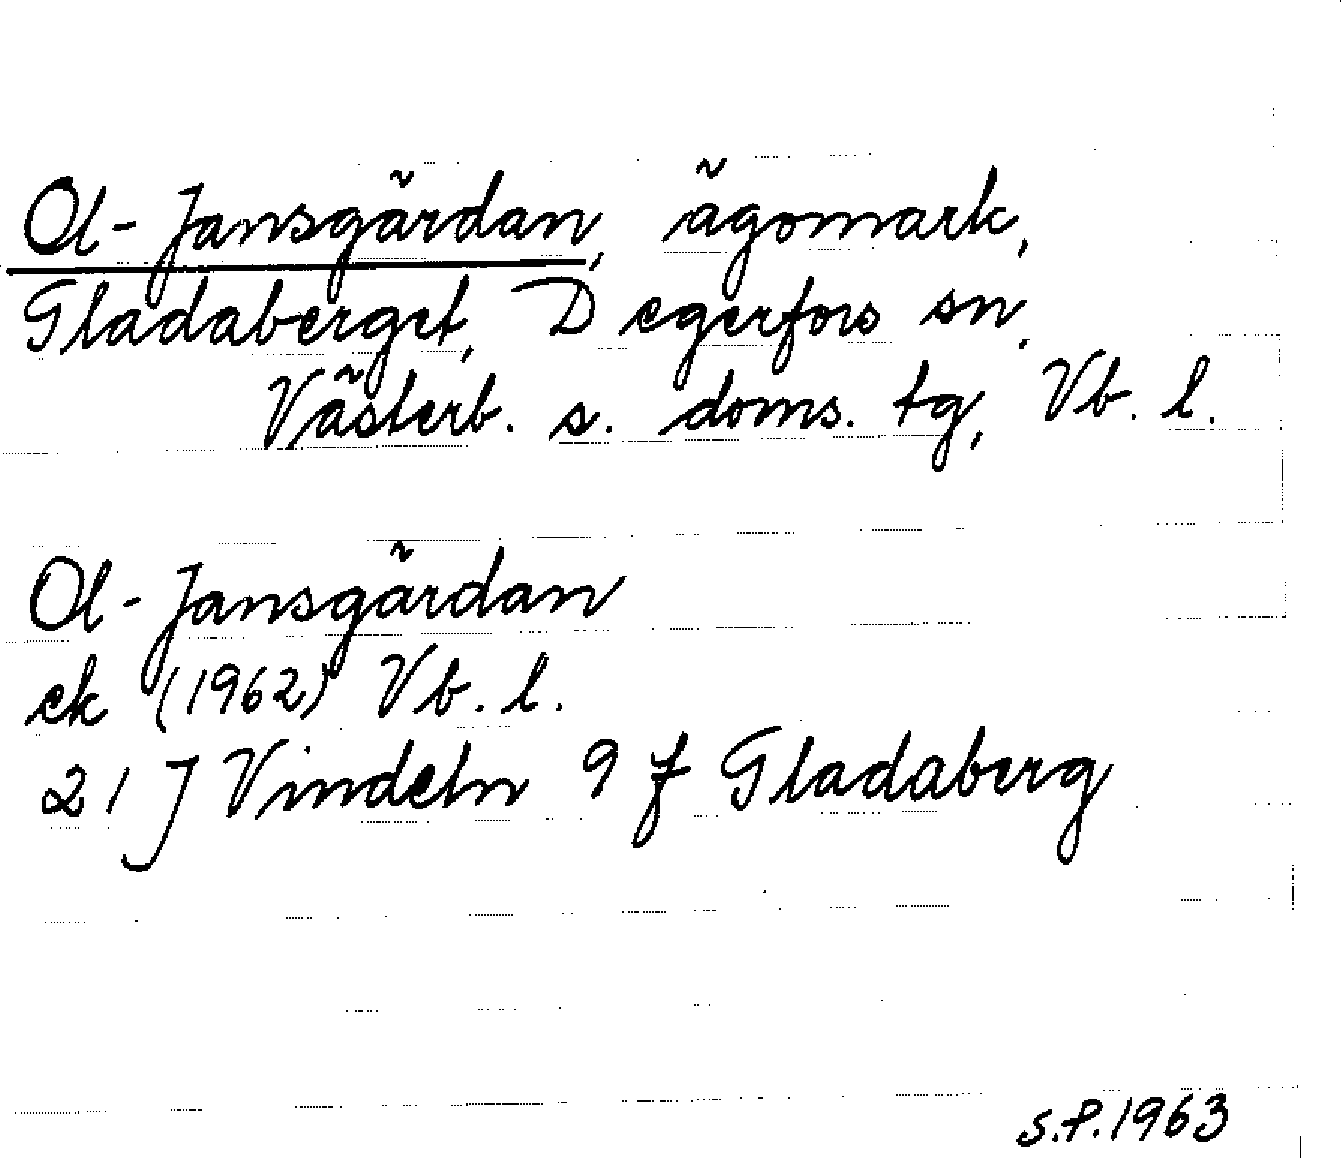 Ol-Jansgärdan, ägomark,
Gladaberget, Degerfors sn.
Västerb. s. doms. tg, Vb. l.
Ol-Jansgärdan
ek (1962) Vb. l.
21 J Vindeln 9 f Gladaberg
S.P. 1963